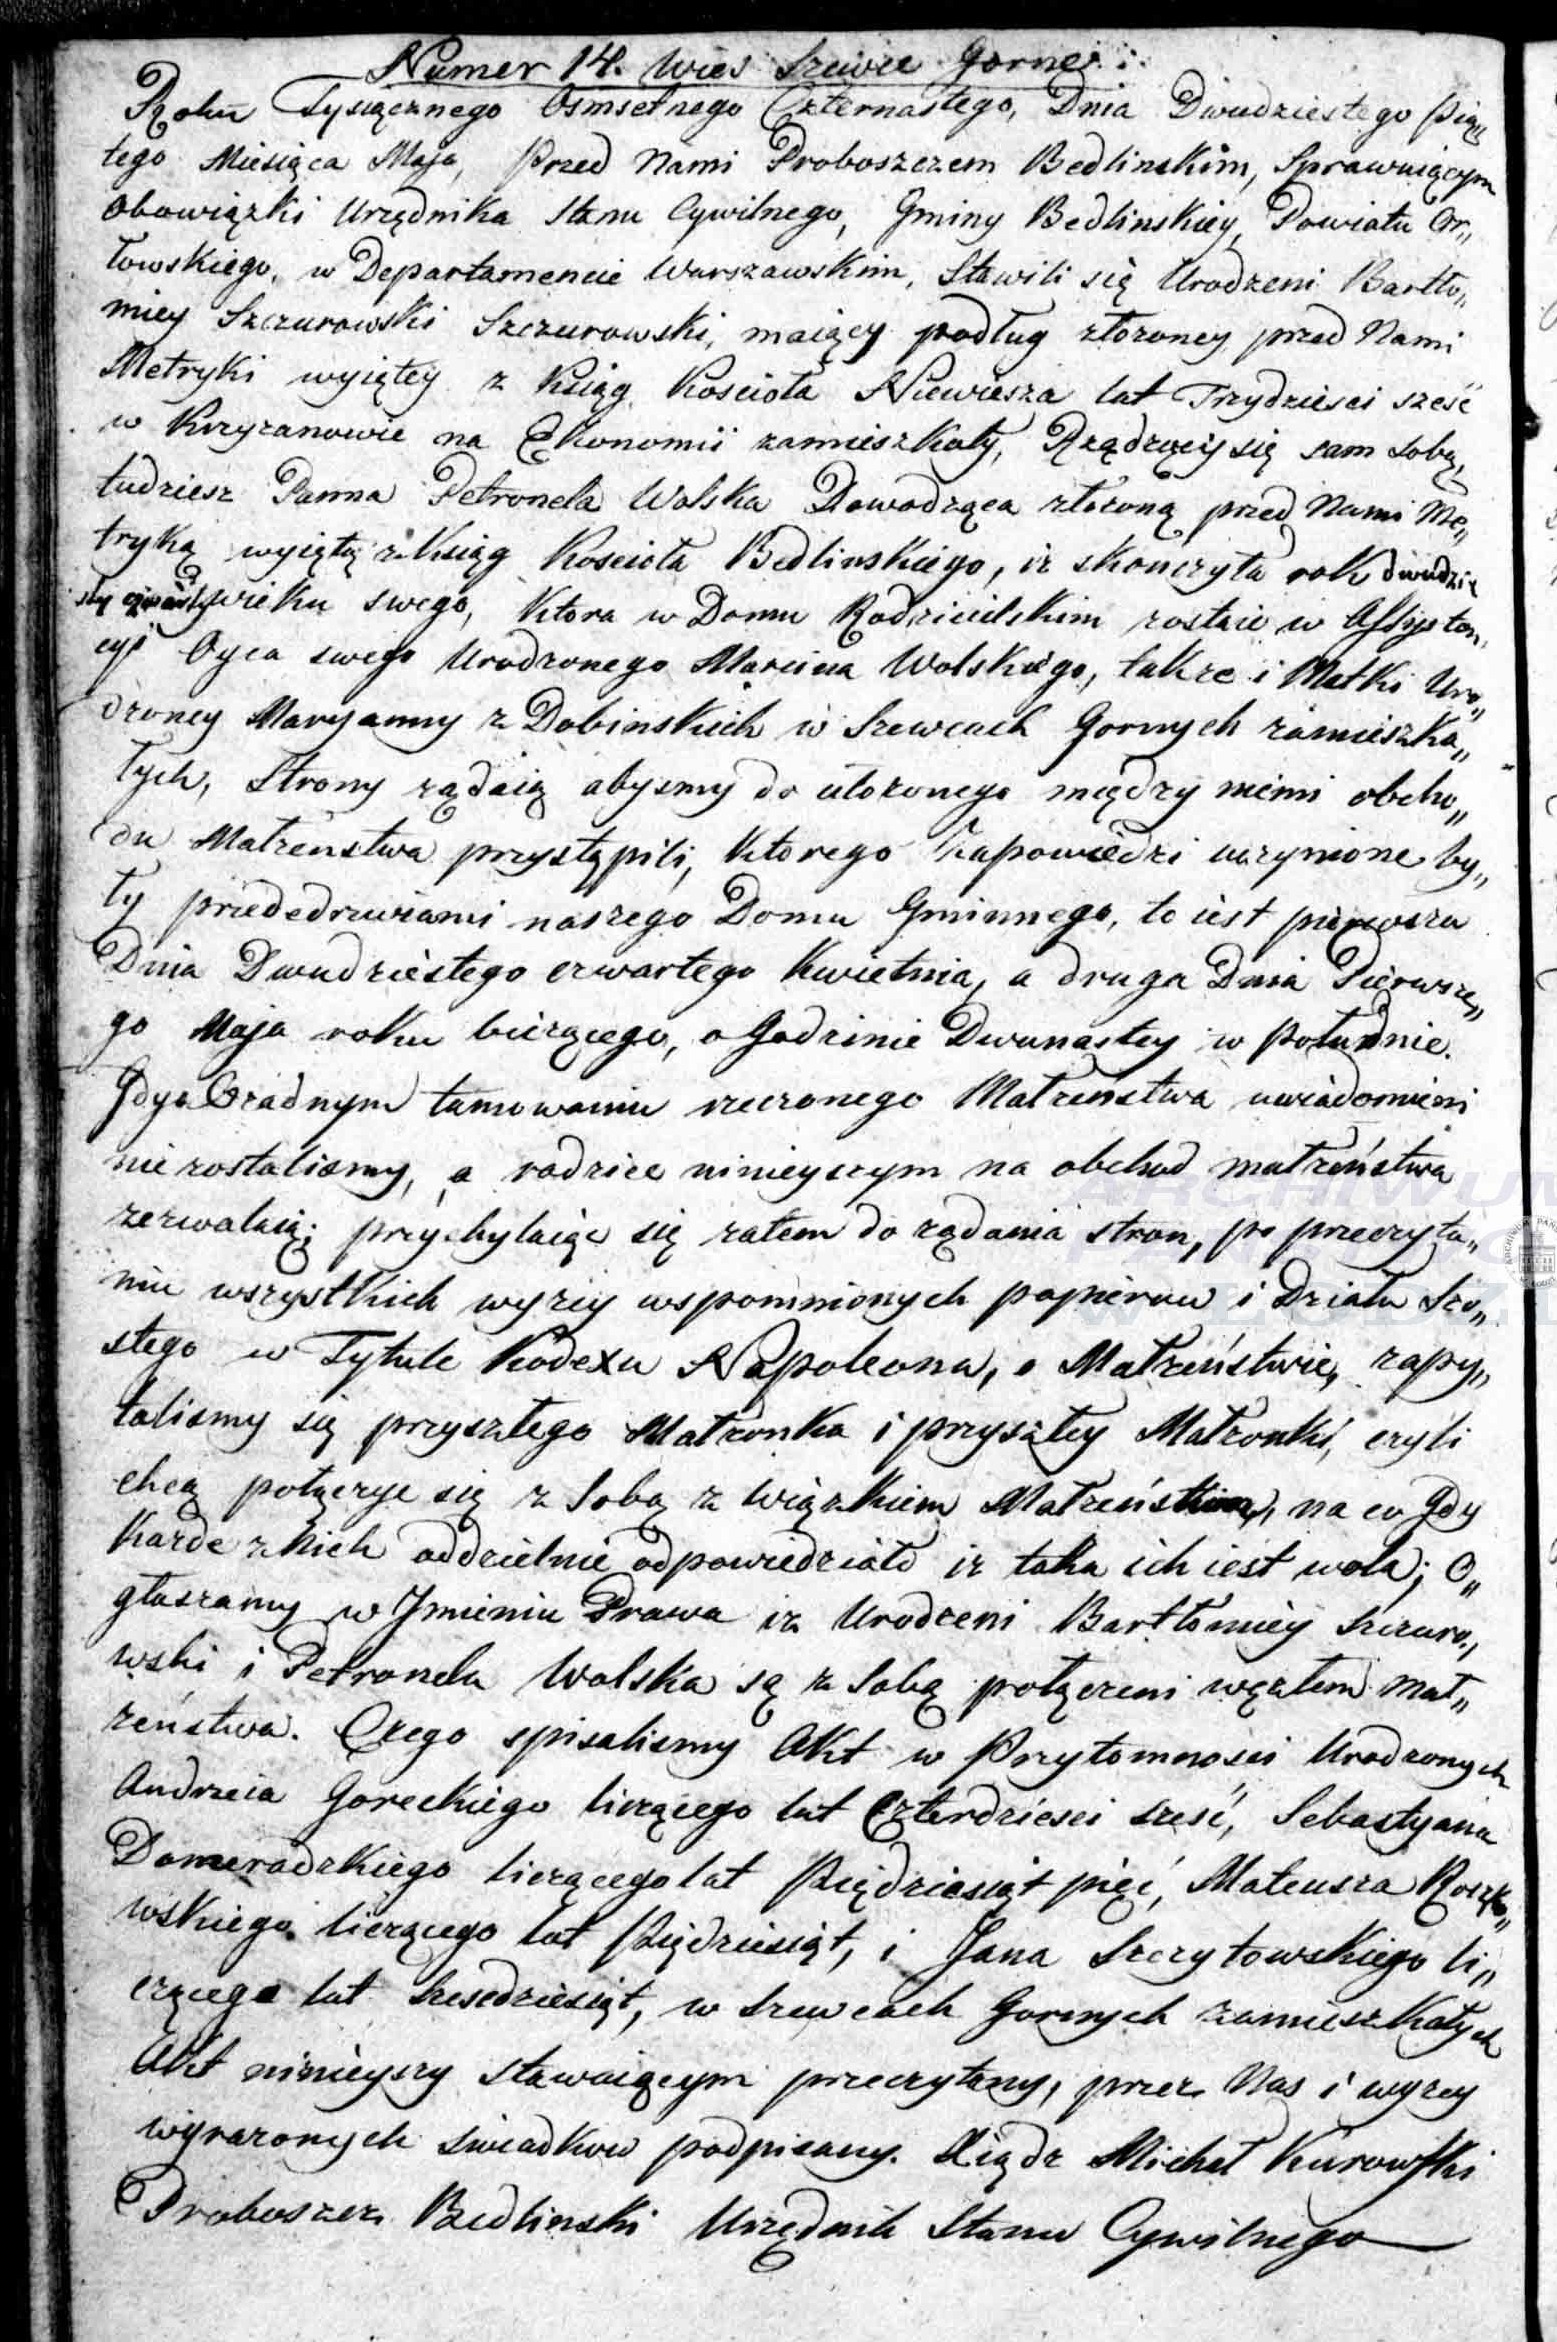 Numer 14. Wieś Szewce Gorne.
Roku Tysiącznego Osmsetnego Czternastego, Dnia Dwudziestego Pią„
tego Miesiąca Maja, Przed Nami Proboszczem Bedlinskim, Sprawuiącym
Obowiązki Urzędnika Stanu Cywilnego, Gminy Bedlinskiey, Powiatu Or„
łowskiego, w Departamencie Warszawskim, Stawili się Urodzeni Bartło„
miey Szczurowski Szczurowski, maiący podług złozoney przed Nami
Metryki wyiętey z Ksiąg Kosciota Niewiesza lat Trzydziesci sześć
w Krzyzanowie na Ekonomii zamieszkały, Rządzący się sam sobą,
tudziesz Panna Petronela Wolska Dowodząca złozoną przed Nami Me„
tryką wyiętą z Ksiąg Kosciota Bedlinskiego, iz skonczyła rok dwudzie
sty wieku swego, Ktora w Domu Rodzicielskim zostaie w Assysten„
cyi Oyca swego Urodzonego Marcina Wolskiego, takze i Matki Uro„
dzoney Maryanny z Dobinskich w Szewcach Gornych zamieszka„
łych, Strony ządaią abysmy do ułozonego między niemi obcho„
du Małzenstwa przystąpili, Ktorego Zapowiedzi uczynione by„
ły przededrzwiami naszego Domu Gminnego, to iest pierwsza
Dnia Dwudziestego czwartego Kwietnia, a druga Dnia Pierwsze„
go Maja roku bieżącego, o Godzinie Dwunastey w Południe.
Gdy o Zadnym tamowaniu rzeczonego Małzenstwa uwiadomieni
nie zostalismy, a rodzice ninieyszym na obchod małzeństwa
zezwalaią; przychylaiąc się zatem do ządania stron, po przeczyta„
niu wszystkich wyzey wspomnionych papierow i Działu Szo„
stego w Tytule Kodexu Napoleona, o Małzeństwie, zapy„
talismy się przyszłego Małzonka i przyszłey Małzonki, czyli
chcą połączyc się z Sobą związkiem Małzeńskim, na co Gdy
Kazde z nich oddzielnie odpowiedziało iz taka ich iest wola; O„
głaszamy w Jmieniu Prawa iz Urodzeni Bartłomiey Szczuro„
wski i Petronela Wolska są z Sobą połączeni węzłem Mał„
zeństwa. Czego spisalismy Akt w Przytomnosci Urodzonych
Andrzeia Goreckiego liczącego lat Czterdziesci sześć, Sebastyana
Domeradzkiego liczącego lat Pięćdziesiąt pięć, Mateusza Roszko„
wskiego liczącego lat Pięćdziesiąt, i Jana Szczytowskiego li„
czącego lat Szescdziesiąt, w Szewcach Gornych zamieszkałych
Akt ninieyszy Stawaiącym przeczytany, przez Nas i wyzey
wyrazonych Swiadkow podpisany. Xiądz Michał Kurowski
Proboszcz Bedlinski Urzędnik Stanu Cywilnego
ARCHIWUM
PAŃSTWOWE
W ŁODZI